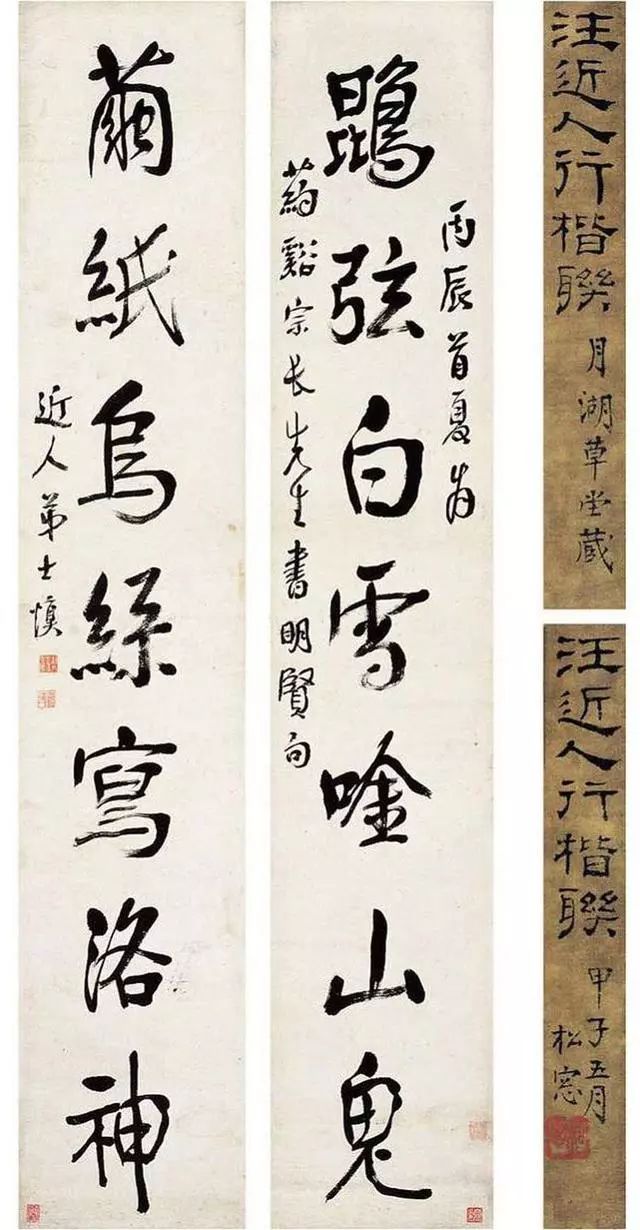 汪近人行楷聯
月湖草堂藏
汪近人行楷聯
甲子五月
松窓
丙辰首夏为
鵾弦白雪唫山鬼
葯谿宗长先生書明賢句
繭紙烏絲寫洛神
近人弟士慎